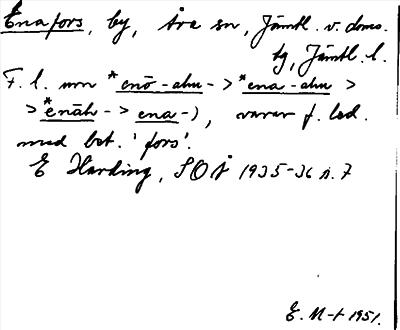 Enafors, by, Åre sn, Jämtl. v. doms.
tg, Jämtl. l.
F. l. urn *enō-ahu- > *ena-ahu >
> *enāh- > ena-), varav f. led.
med bet. 'fors'.
E Harding, SOÅ 1935-36 s. 7
E. M-t 1951.